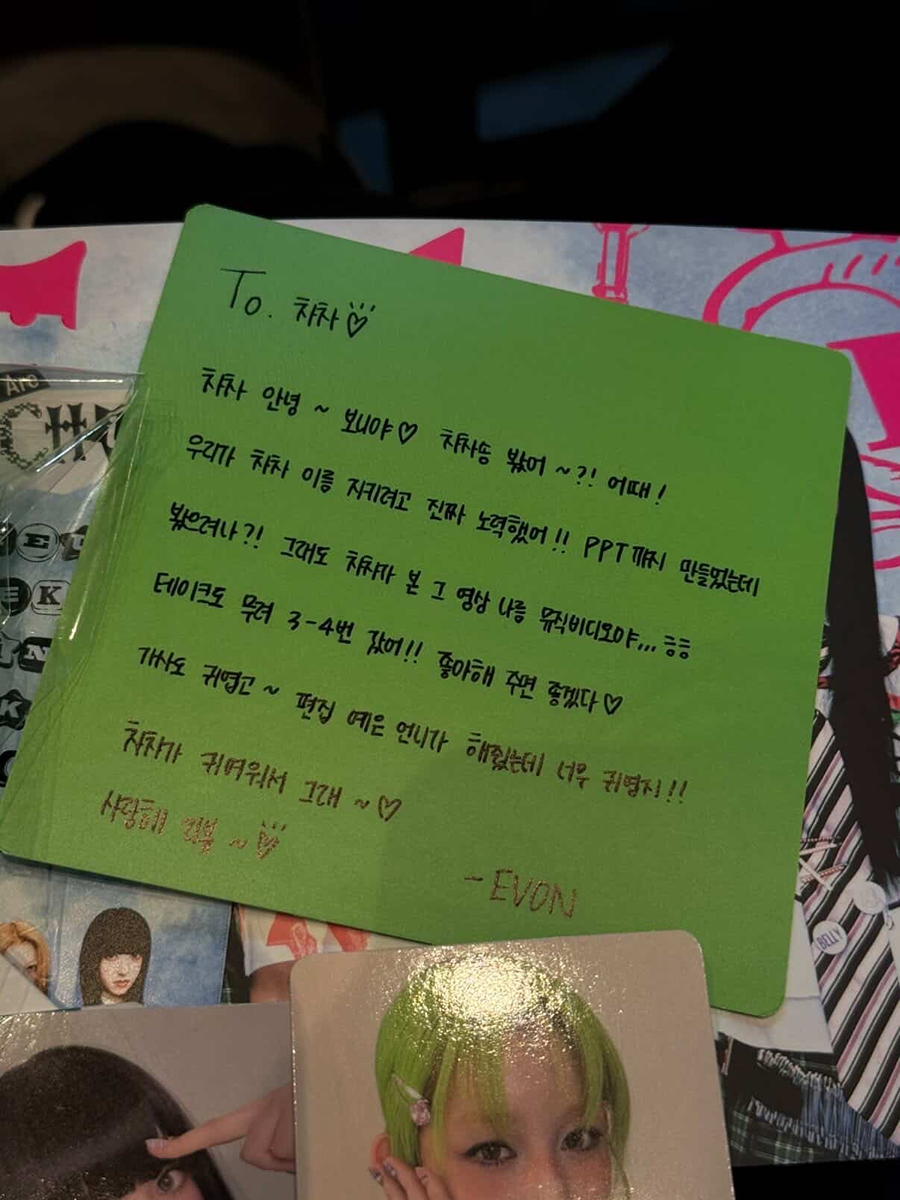 To. 챠챠♡
챠챠 안녕 ~ 보니야♡ 챠챠송 봤어 ~?! 어때!
우리가 챠챠 이름 지키려고 진짜 노력했어!! PPT까지 만들었는데
봤으려나?! 그래도 챠챠가 본 그 영상 나름 뮤직비디오야... ㅎㅎ
테이크도 무려 3-4번 갔어!! 좋아해 주면 좋겠다♡
가사도 귀엽고 ~ 편집 예은 언니가 해줬는데 너무 귀엽지!!
챠챠가 귀여워서 그래 ~ ♡
사랑해 ~ ♡
- EVON
Are
BELLY